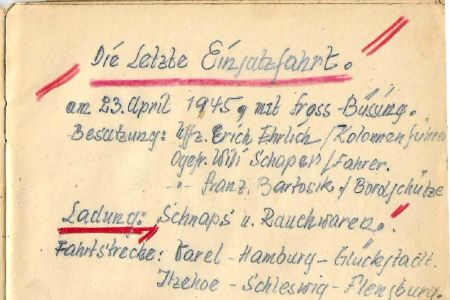 Die Letzte Einsatzfahrt.
am 23. April 1945, mit Gross-Büsing.
Besatzung: Uffz. Erich Ehrlich / Kolonnenführer
Ogefr. Willi Schaper / Fahrer.
-"- Franz. Bartosik / Bordschütze
Ladung: Schnaps u. Rauchwaren.
Fahrtstrecke: Varel - Hamburg - Glückstadt.
Itzehoe - Schleswig - Flensburg.